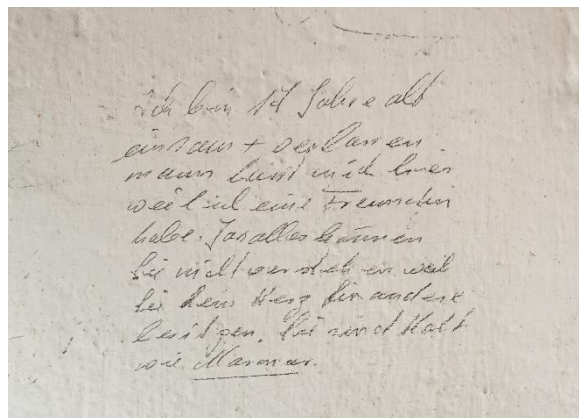 Ich bin 14 Jahre alt
einsam + verlassen
mann heist mich hier
weil ich eine Freundin
habe. Das alles können
sie nicht verstehen weil
sie kein Herz für andere
besitzen. Sie sind Kalt
wie Marmor.